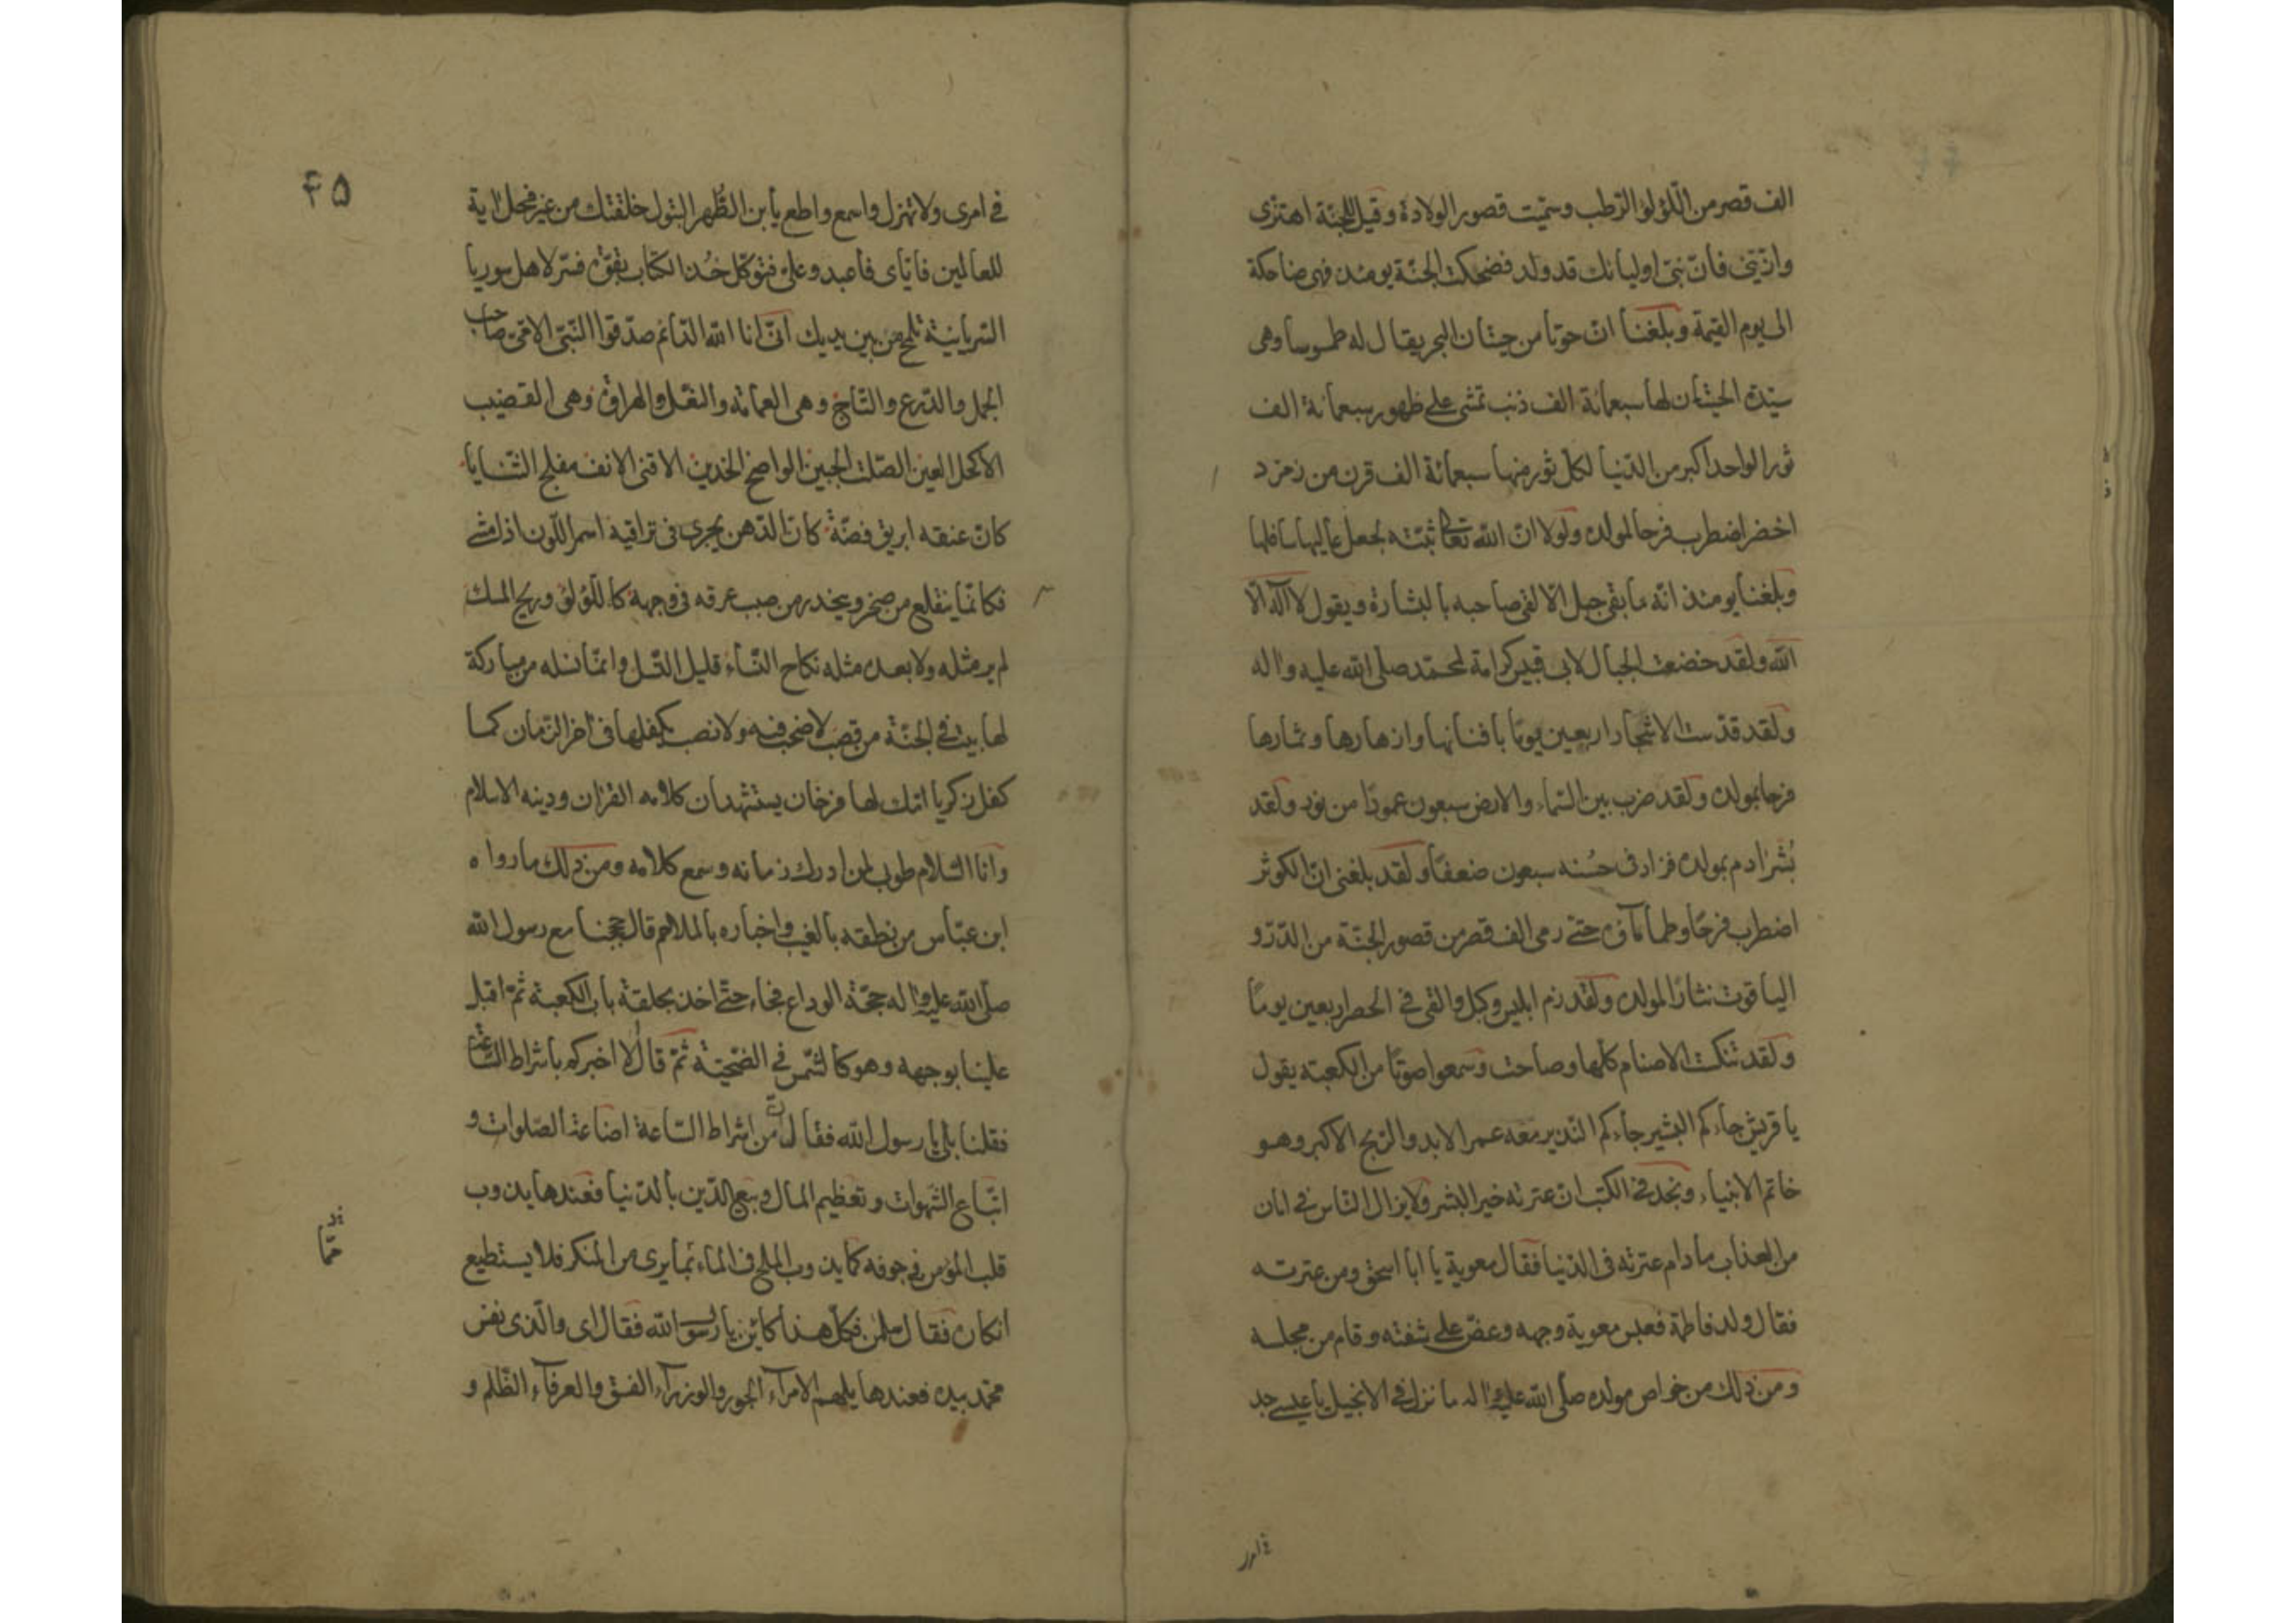 الف قصر من اللّؤلؤ الرّطب وسمّيت قصور الولادة وقيل للجنّة اهتزّى
وازّيّنى فانّ نبىّ اوليائك قد ولد فضحكت الجنّة يومئذ فهى ضاحكة
الى يوم القيمة وبلغنا انّ حوتا من حيتان البحر يقال له طموسا وهى
سيّدة الحيتان لها سبعمائة الف ذنب تمشى على ظهور سبعمائة الف
ثور الواحد اكبر من الدّنيا لكلّ ثور منها سبعمائة الف قرن من زمرّد
اخضر اضطرب فرحا لمولده ولولا انّ الله تعالى ثبّته لجعل عاليها سافلها
وبلغنا يومئذ انّه ما بقى جبل الّا لقى صاحبه بالبشارة ويقول لا اله الّا
الله ولقد خضعت الجبال لابى قبيس كرامة لمحمّد صلّى الله عليه واله
ولقد قدّست الاشجار اربعين يومًا بافنانها وازهارها وثمارها
فرحا بمولده ولقد ضرب بين السّماء والارض سبعون عمودًا من نور ولقد
بُشّر ادم بمولده فزاد فى حُسنه سبعون ضعفًا ولقد بلغنى انّ الكوثر
اضطرب فرحًا وطما مآؤه حتّى رمى الف قصر من قصور الجنّة من الدّرّ و
الياقوت نثارًا لمولده ولقد زمّ ابليس وكبل والقى فى الحصر اربعين يومًا
ولقد تنكّست الاصنام كلّها وصاحت وسمعوا صوتًا من الكعبة يقول
يا قريش جاءكم البشير جاءكم النّذير معه عمر الابد والرّبح الاكبر وهو
خاتم الانبياء ونجد فى الكتب انّ عترته خير البشر ولا يزال النّاس فى امان
من العذاب ما دام عترته فى الدّنيا فقال معوية يا ابا اسحق ومن عترته
فقال ولد فاطمة فعبس معوية وجهه وعضّ على شفته وقام من مجلسه
ومن ذلك من خواص مولده صلّى الله عليه واله ما نزل فى الانجيل يا عيسى جد
۴۵
فى امرى ولا تهزل واسمع واطع يا بن الطّهر البتول خلقتك من غير فحل اية
للعالمين فايّاى فاعبد وعلىّ فتوكّل خُذ الكتاب بقوّة فسّر لاهل سوريا
السّريانيّة بلّغ من بين يديك انّى انا الله الدّائم صدّقوا النّبىّ الامّىّ صاحب
الجمل والدّرع والتّاج وهى العمامة والنّعل والهراوة وهى القضيب
الاكحل العين الصّلت الجبين الواضح الخدّين الاقنى الانف مفلج الثّنايا
كانّ عنقه ابريق فضّة كانّ الذّهب يجرى فى تراقيه اسمر اللّون اذا مشى
فكانّما ينقلع من صخر وينحدر من صبب عرقه فى وجهه كاللّؤلؤ وريح المسك
لم ير مثله ولا بعده مثله نكاح النّساء قليل النّسل وانّما نسله من مباركة
لها بيت فى الجنّة من قصب لا صخب فيه ولا نصب يكفلها فى اخر الزّمان كما
كفل زكريا امّك لها فرخان يستشهدان كلامه القران ودينه الاسلام
وانا السّلام طوبى لمن ادرك زمانه وسمع كلامه ومن ذلك ما رواه
ابن عبّاس من نطقه بالغيب واخباره بالملاحم قال حججنا مع رسول الله
صلّى الله عليه واله حجّة الوداع فجاء حتّى اخذ بحلقة باب الكعبة ثمّ اقبل
علينا بوجهه وهو كالشّمس فى الضّحيّة ثمّ قال الا اخبركم باشراط السّاعة
فقلنا بلى يا رسول الله فقال انّ من اشراط السّاعة اضاعة الصّلوات و
اتّباع الشّهوات وتعظيم المال وبيع الدّين بالدّنيا فعندها يذوب
قلب المؤمن فى جوفه كما يذوب الملح فى الماء بما يرى من المنكر فلا يستطيع
انكاره فقال سلمن فكلّ هذا كائن يا رسول الله فقال اى والّذى نفس
محمّد بيده فعندها يليهم الامرآء الجور والوزرآء الفسق والعرفآء الظّلم و